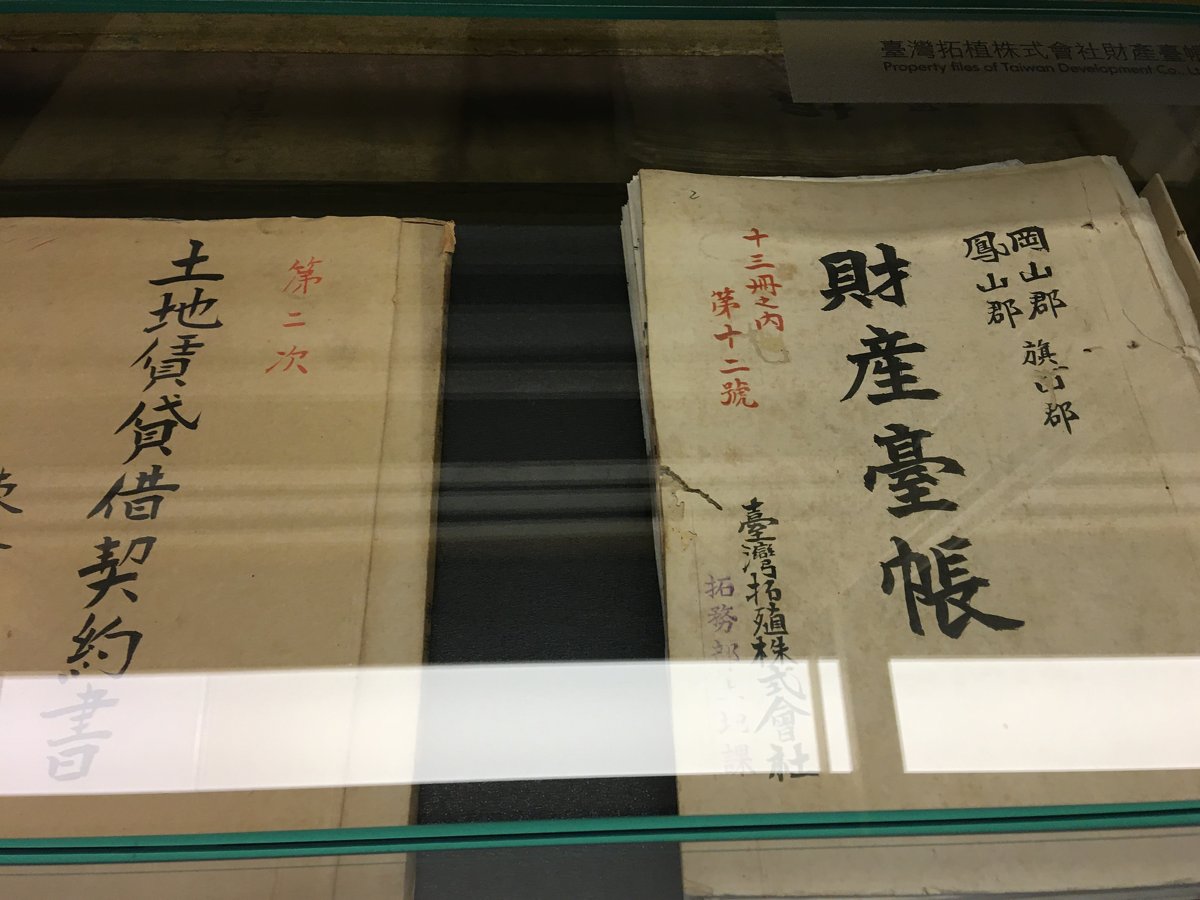 臺灣拓植株式會社財產臺帳
Property files of Taiwan Development Co., Lt
岡山郡 旗山郡
鳳山郡
財産臺帳
十三冊之内
第十二號
臺灣拓殖株式會社
拓務部土地課
第二次
土地賃貸借契約書